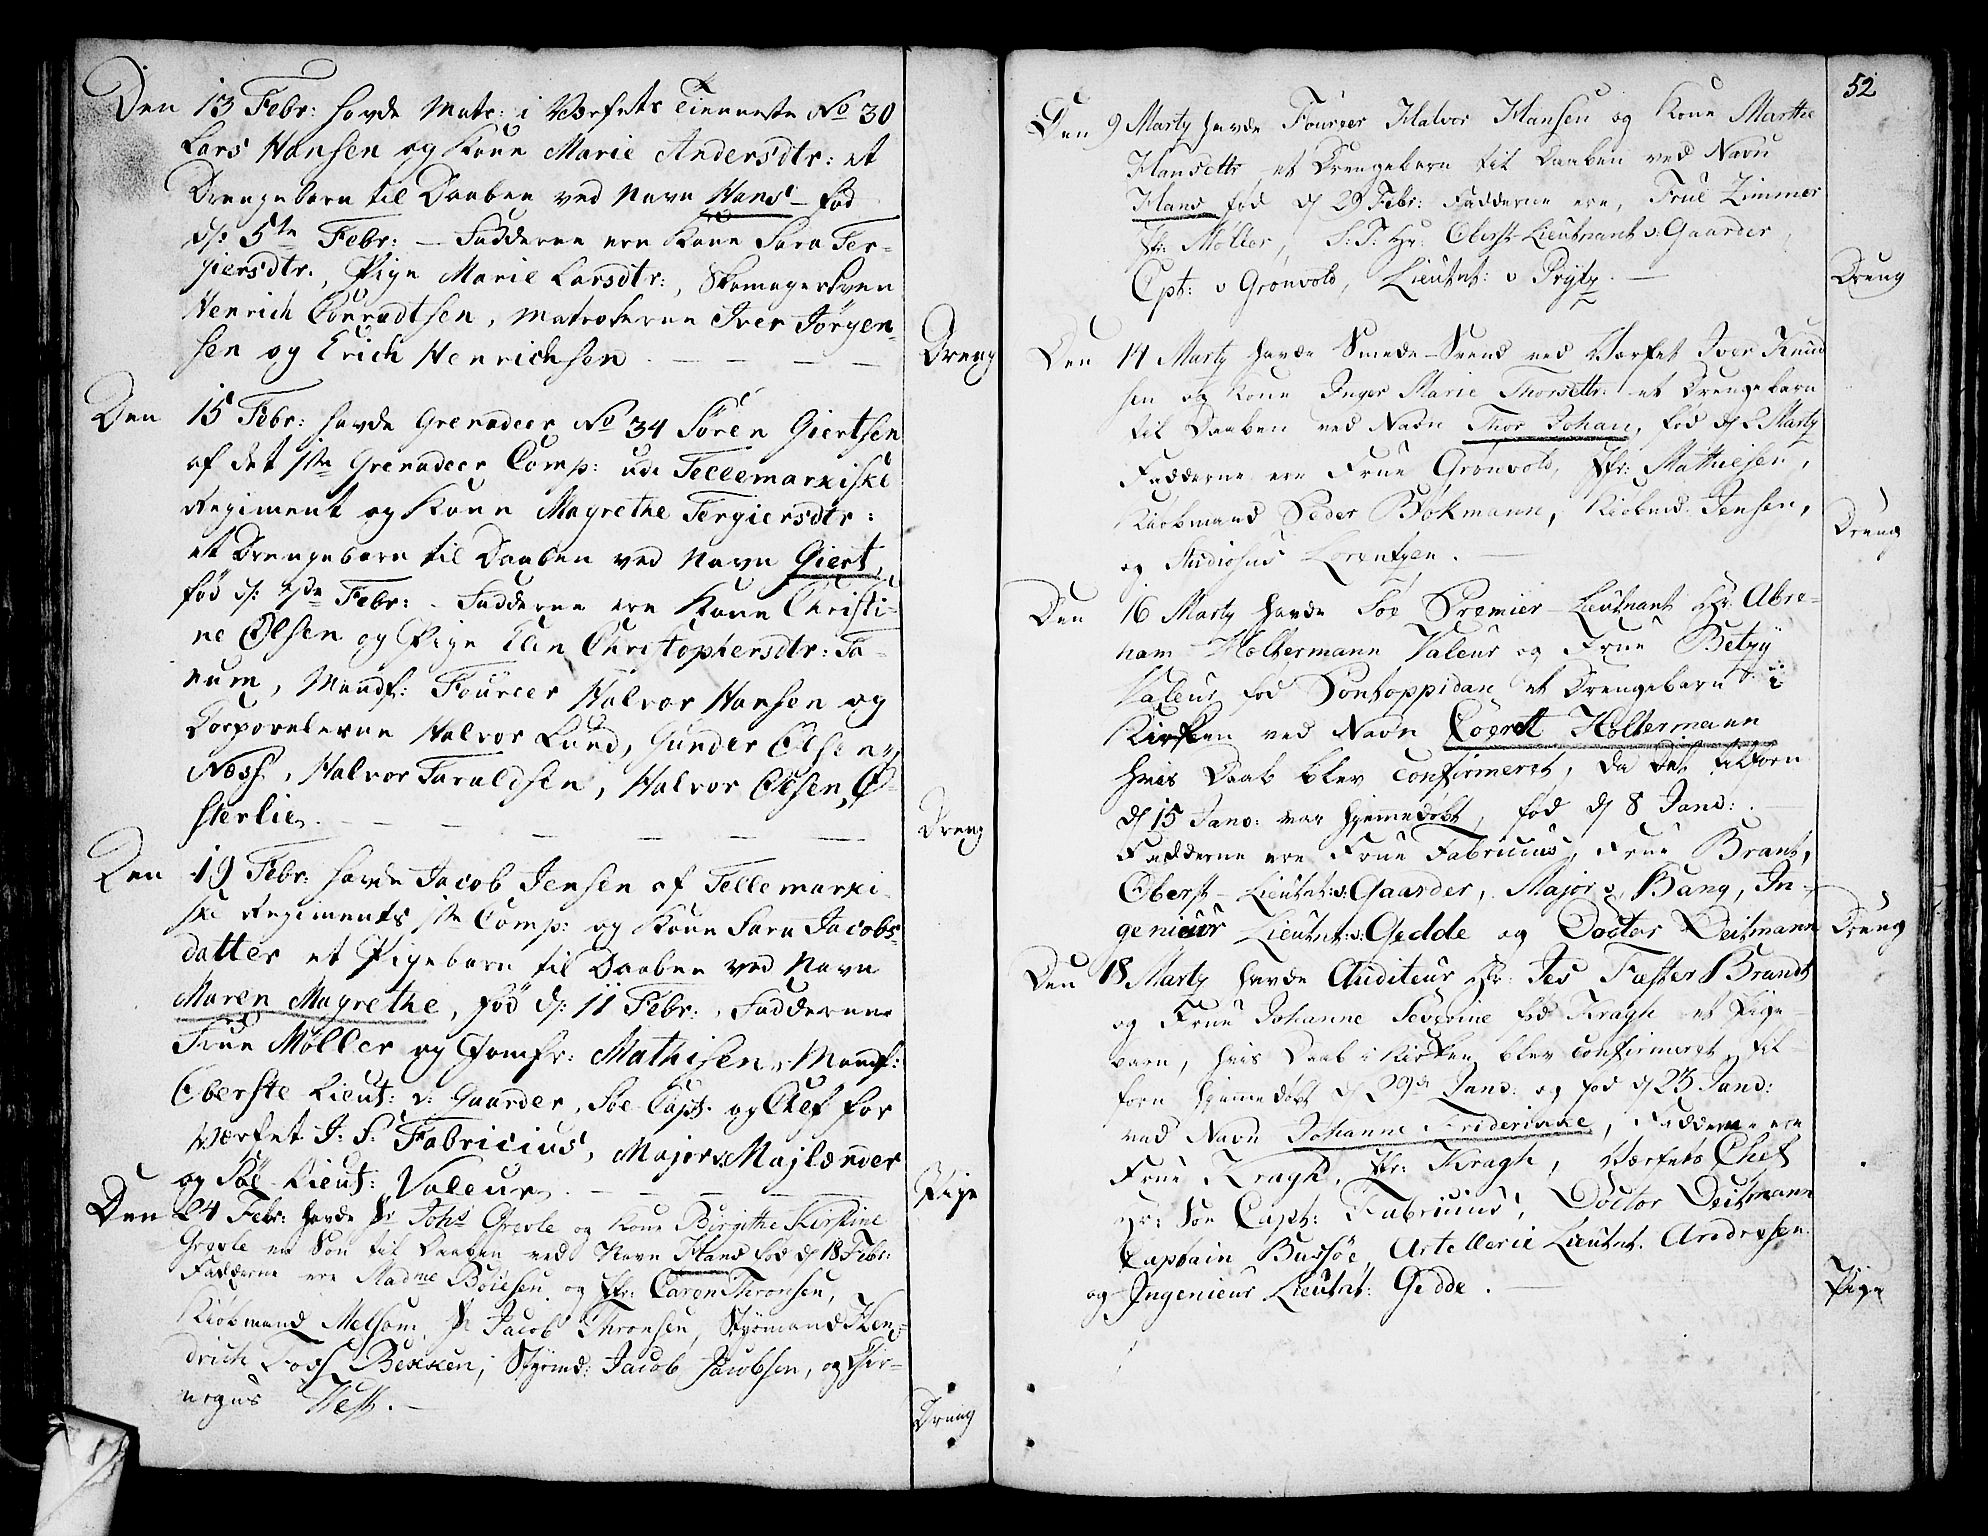 Den 13 Febr: havde Matr: i Værfets Tienneste No 30
Lars Hansen og Kone Marie Andersdtr: et
Drengebarn til Daaben ved Navn Hans – fød
d: 5te Febr: – Fadderne ere Kone Sara Ter-
giersdtr:, Pige Marie Larsdtr:, Skomager Svem
Henrich Conradtsen, Matroserne Iver Jörgen-
sen og Erich Henrichsen – – –
Dreng
Den 15 Febr: havde Grenadeer No 34 Sören Giertsen
af det 1ste Grenadeer Comp: udi Tellemarkiske
Regiment og Kone Magrethe Tergiersdtr:
et Drengebarn til Daaben ved Navn Giert,
föd d: 7de Febr: – Fadderne ere Kone Christi-
ne Olsen og Pige Elin Christophersdtr: Fa-
num, Mandf: Foureer Halvor Hansen og
Corporalerne Halvor Lund, Gunder Olsen
Næss, Halvor Taraldsen, Halvor Olsen Ö-
sterlie. – – – – –
Dreng
Den 19 Febr: havde Jacob Jensen af Tellemarki-
ske Regiments 1ste Comp: og Kone Sara Jacobs-
datter et Pigebarn til Daaben ved Navn
Maren Magrethe, föd d: 11 Febr:, Fadderne
Frue Møller og Jomfr: Mathisen, Mandf:
Oberste Lieut: v: Gaarder, Søe-Capt: og Chef for
Værfet J: S: Fabricius, Major v: Majlænder
og Søe-Lieut: Valeur. – – – –
Pige
Den 24 Febr: havde Sr Johs Grevle og Kone Birgithe Kirstine
Grevle en Søn til Daaben ved Navn Hans fød d 18 Febr:
Fadderne ere Madme Boiesen og Jfr: Caren Thronsen,
Kiöbmand Melsom, Sr Jacob Thronsen, Styrmand Hen-
drich Foss Bekken, Styrmd: Jacob Jacobsen, og Chir-
urgus Hess. –
Dreng
52
Den 9 Marty havde Foureer Halvor Hansen og Kone Marthe
Hansdttr et Drengebarn til Daaben ved Navn
Hans fød d 29 Febr: Fadderne ere, Frue Zimmer
Jfr: Møller, S.T. Hr: Oberst-Lieutnant v: Gaarder,
Cpt: v Grønvold, Lieutnt: v Prytz. –
Dreng
Den 14 Marty havde Smede-Svend ved Værfet Iver Knud
sen og Kone Inger Marie Thorsdttr: et Drengebarn
til Daaben ved Navn Thor Johan, fød d 2 Marty
Fadderne ere Frue Grønvold, Jfr: Mathiesen,
Kiöbmand Peder Blökmann, Kiöbmd: Jensen,
og Studiosus Lorentzen. –
Dreng
Den 16 Marty havde Søe Premier-Lieutnant Hr: Abra-
ham Holtermann Valeur og Frue Betzy
Valeur fød Pontoppidan et Drengebarn i
Kirken ved Navn Everet Holtermann
hvis Daab blev confirmeret, da det tilforn
d 15 Janv: var hjemmedøbt, fød d 8 Janv: . –
Fadderne ere Frue Fabricius, Frue Brant,
Oberst-Lieutnt: v: Gaarder, Major v. Bang, In-
genieur Lieutnt: v: Gedde og Doctor Deitmann
Dreng
Den 18 Marty havde Auditeur Hr: Jes Fæster Brandt
og Frue Johanne Severine fød Kragh et Pige-
barn, hvis Daab i Kirken blev confirmeret, til
forn hjemmedøbt d 29de Janv: og fød d 23 Janv:
ved Navn Johanne Friderikke, Fadderne ere
Frue Kragh, Jfr: Kragh, Værfets Chef
Hr: Søe Capt: Fabricius, Doctor Deitmann
Captain Bussøe, Artellerie Lieutnt. Andresen.
og Ingenieur Lieutnt: Gedde. –
Pige